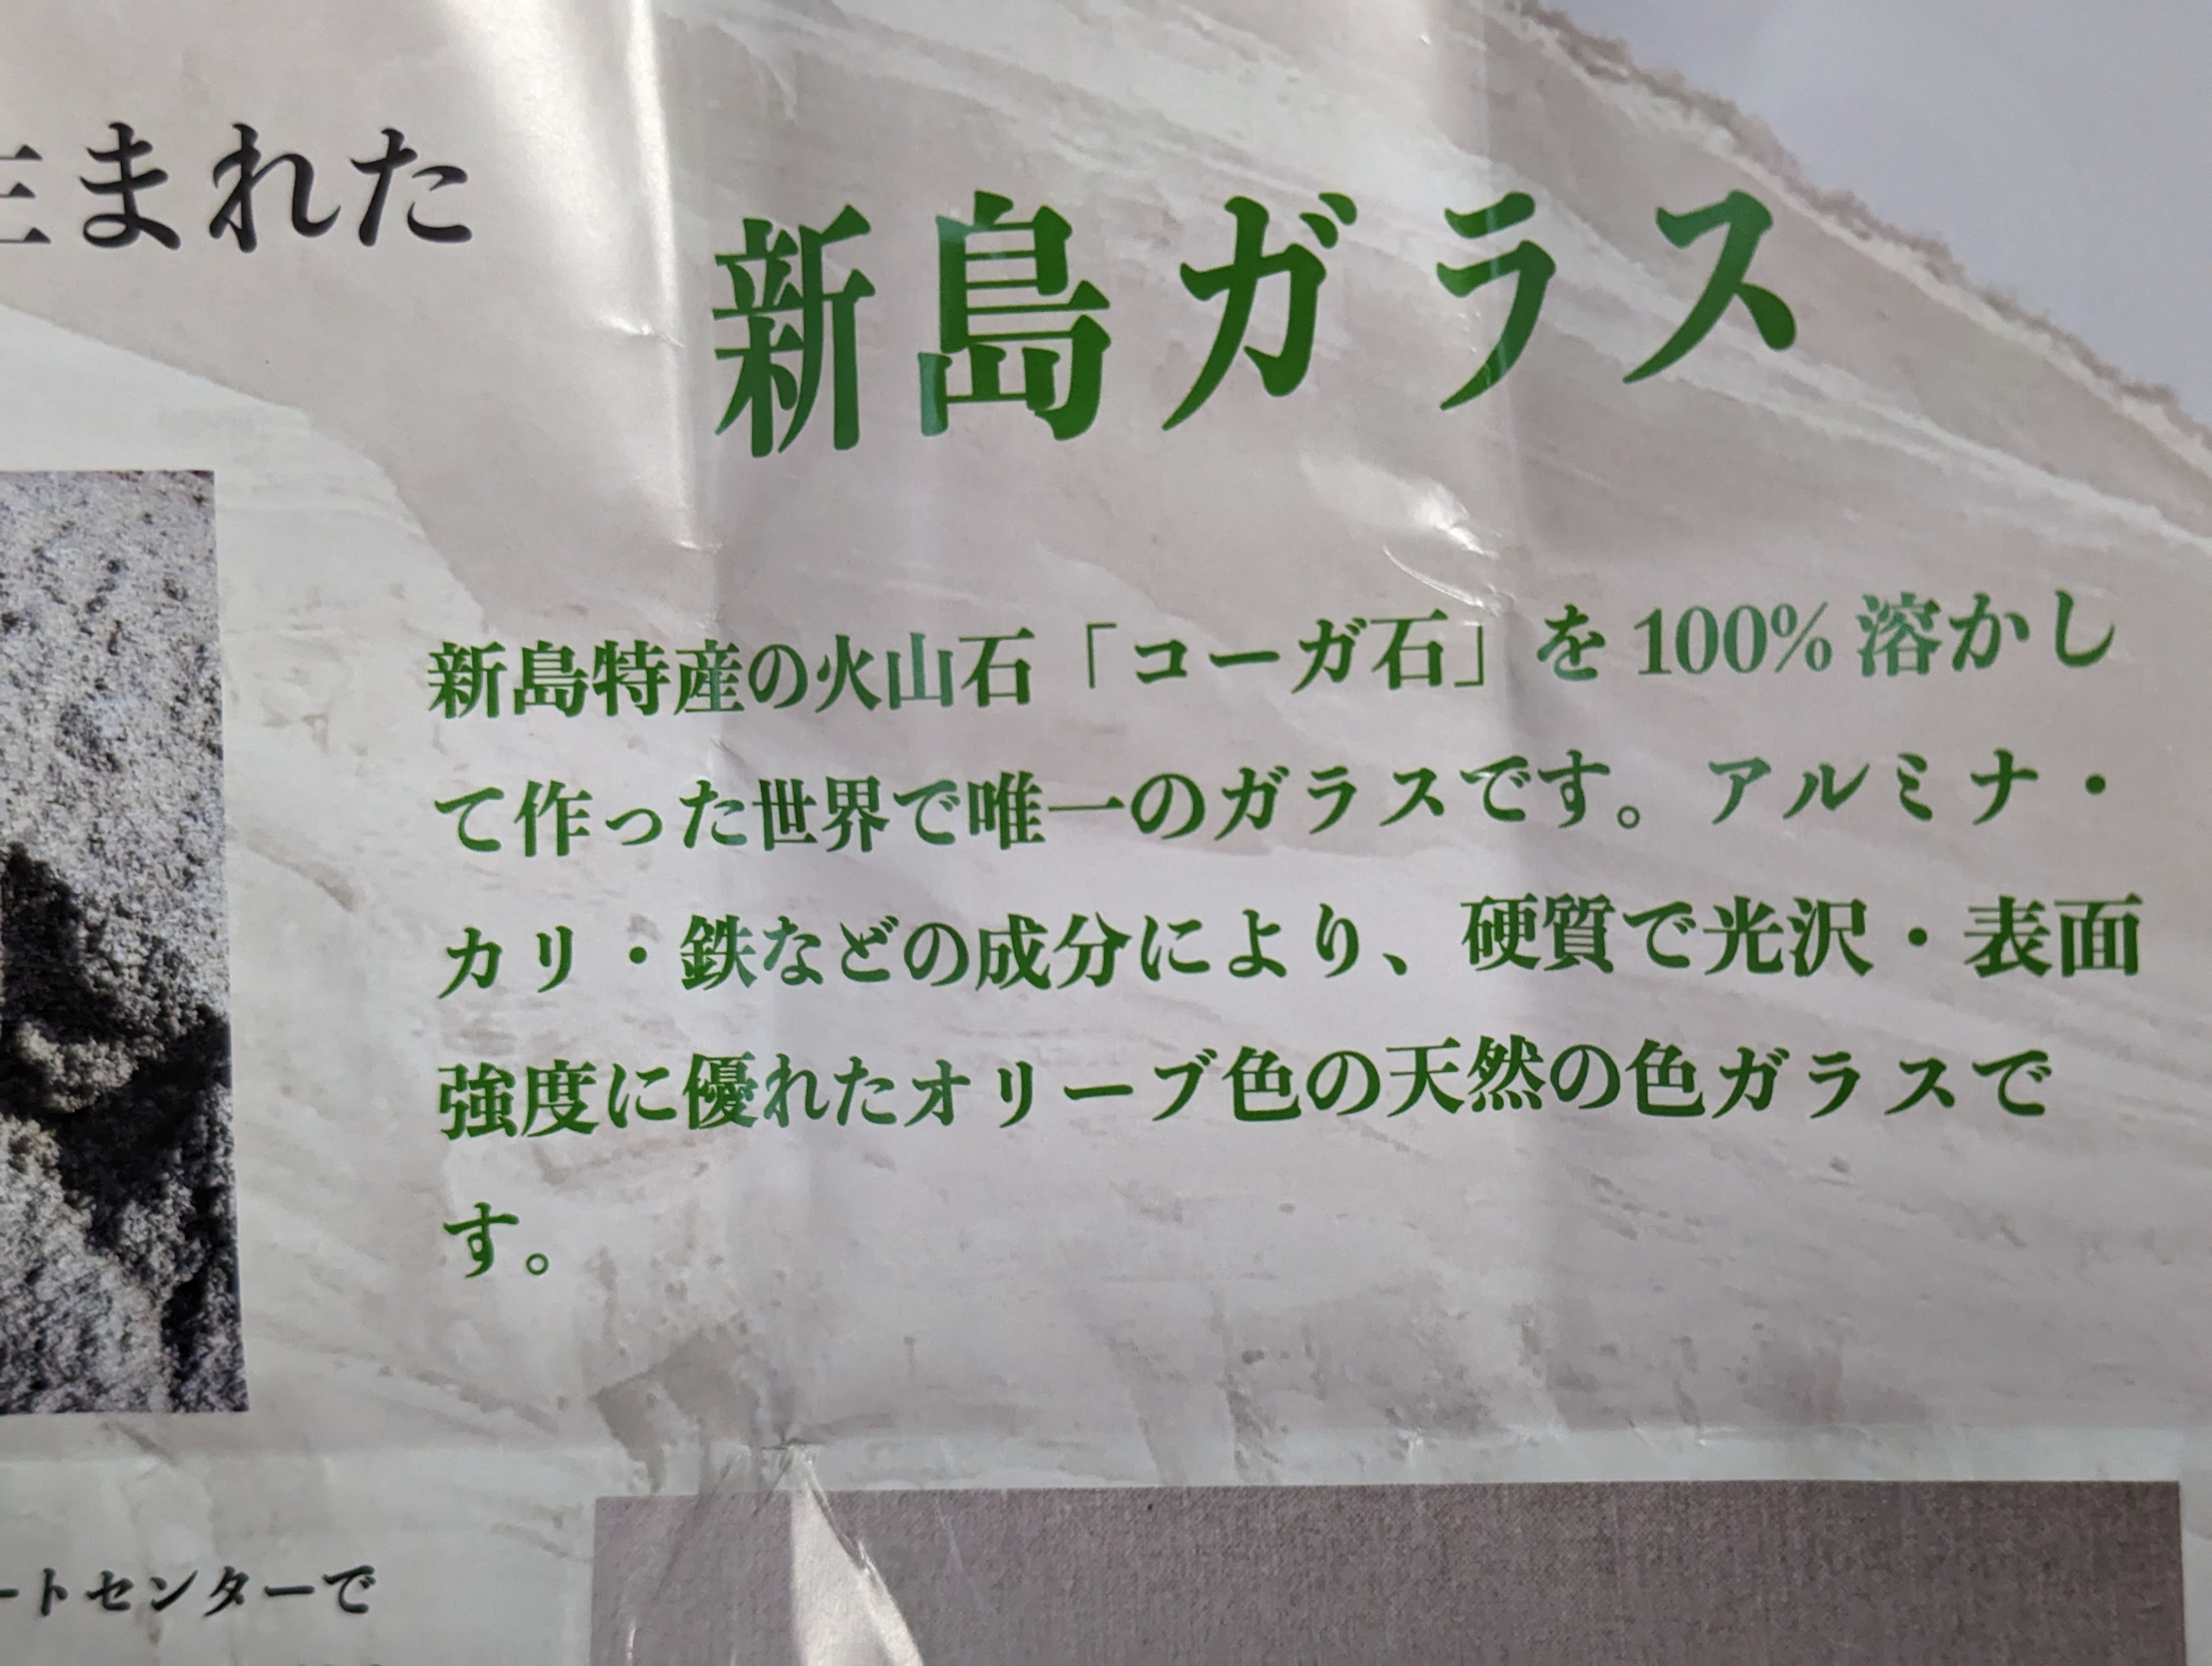 生まれた
新島ガラス
新島特産の火山石「コーガ石」を100%溶かし
て作った世界で唯一のガラスです。アルミナ・
カリ・鉄などの成分により、硬質で光沢・表面
強度に優れたオリーブ色の天然の色ガラスで
す。
ートセンターで